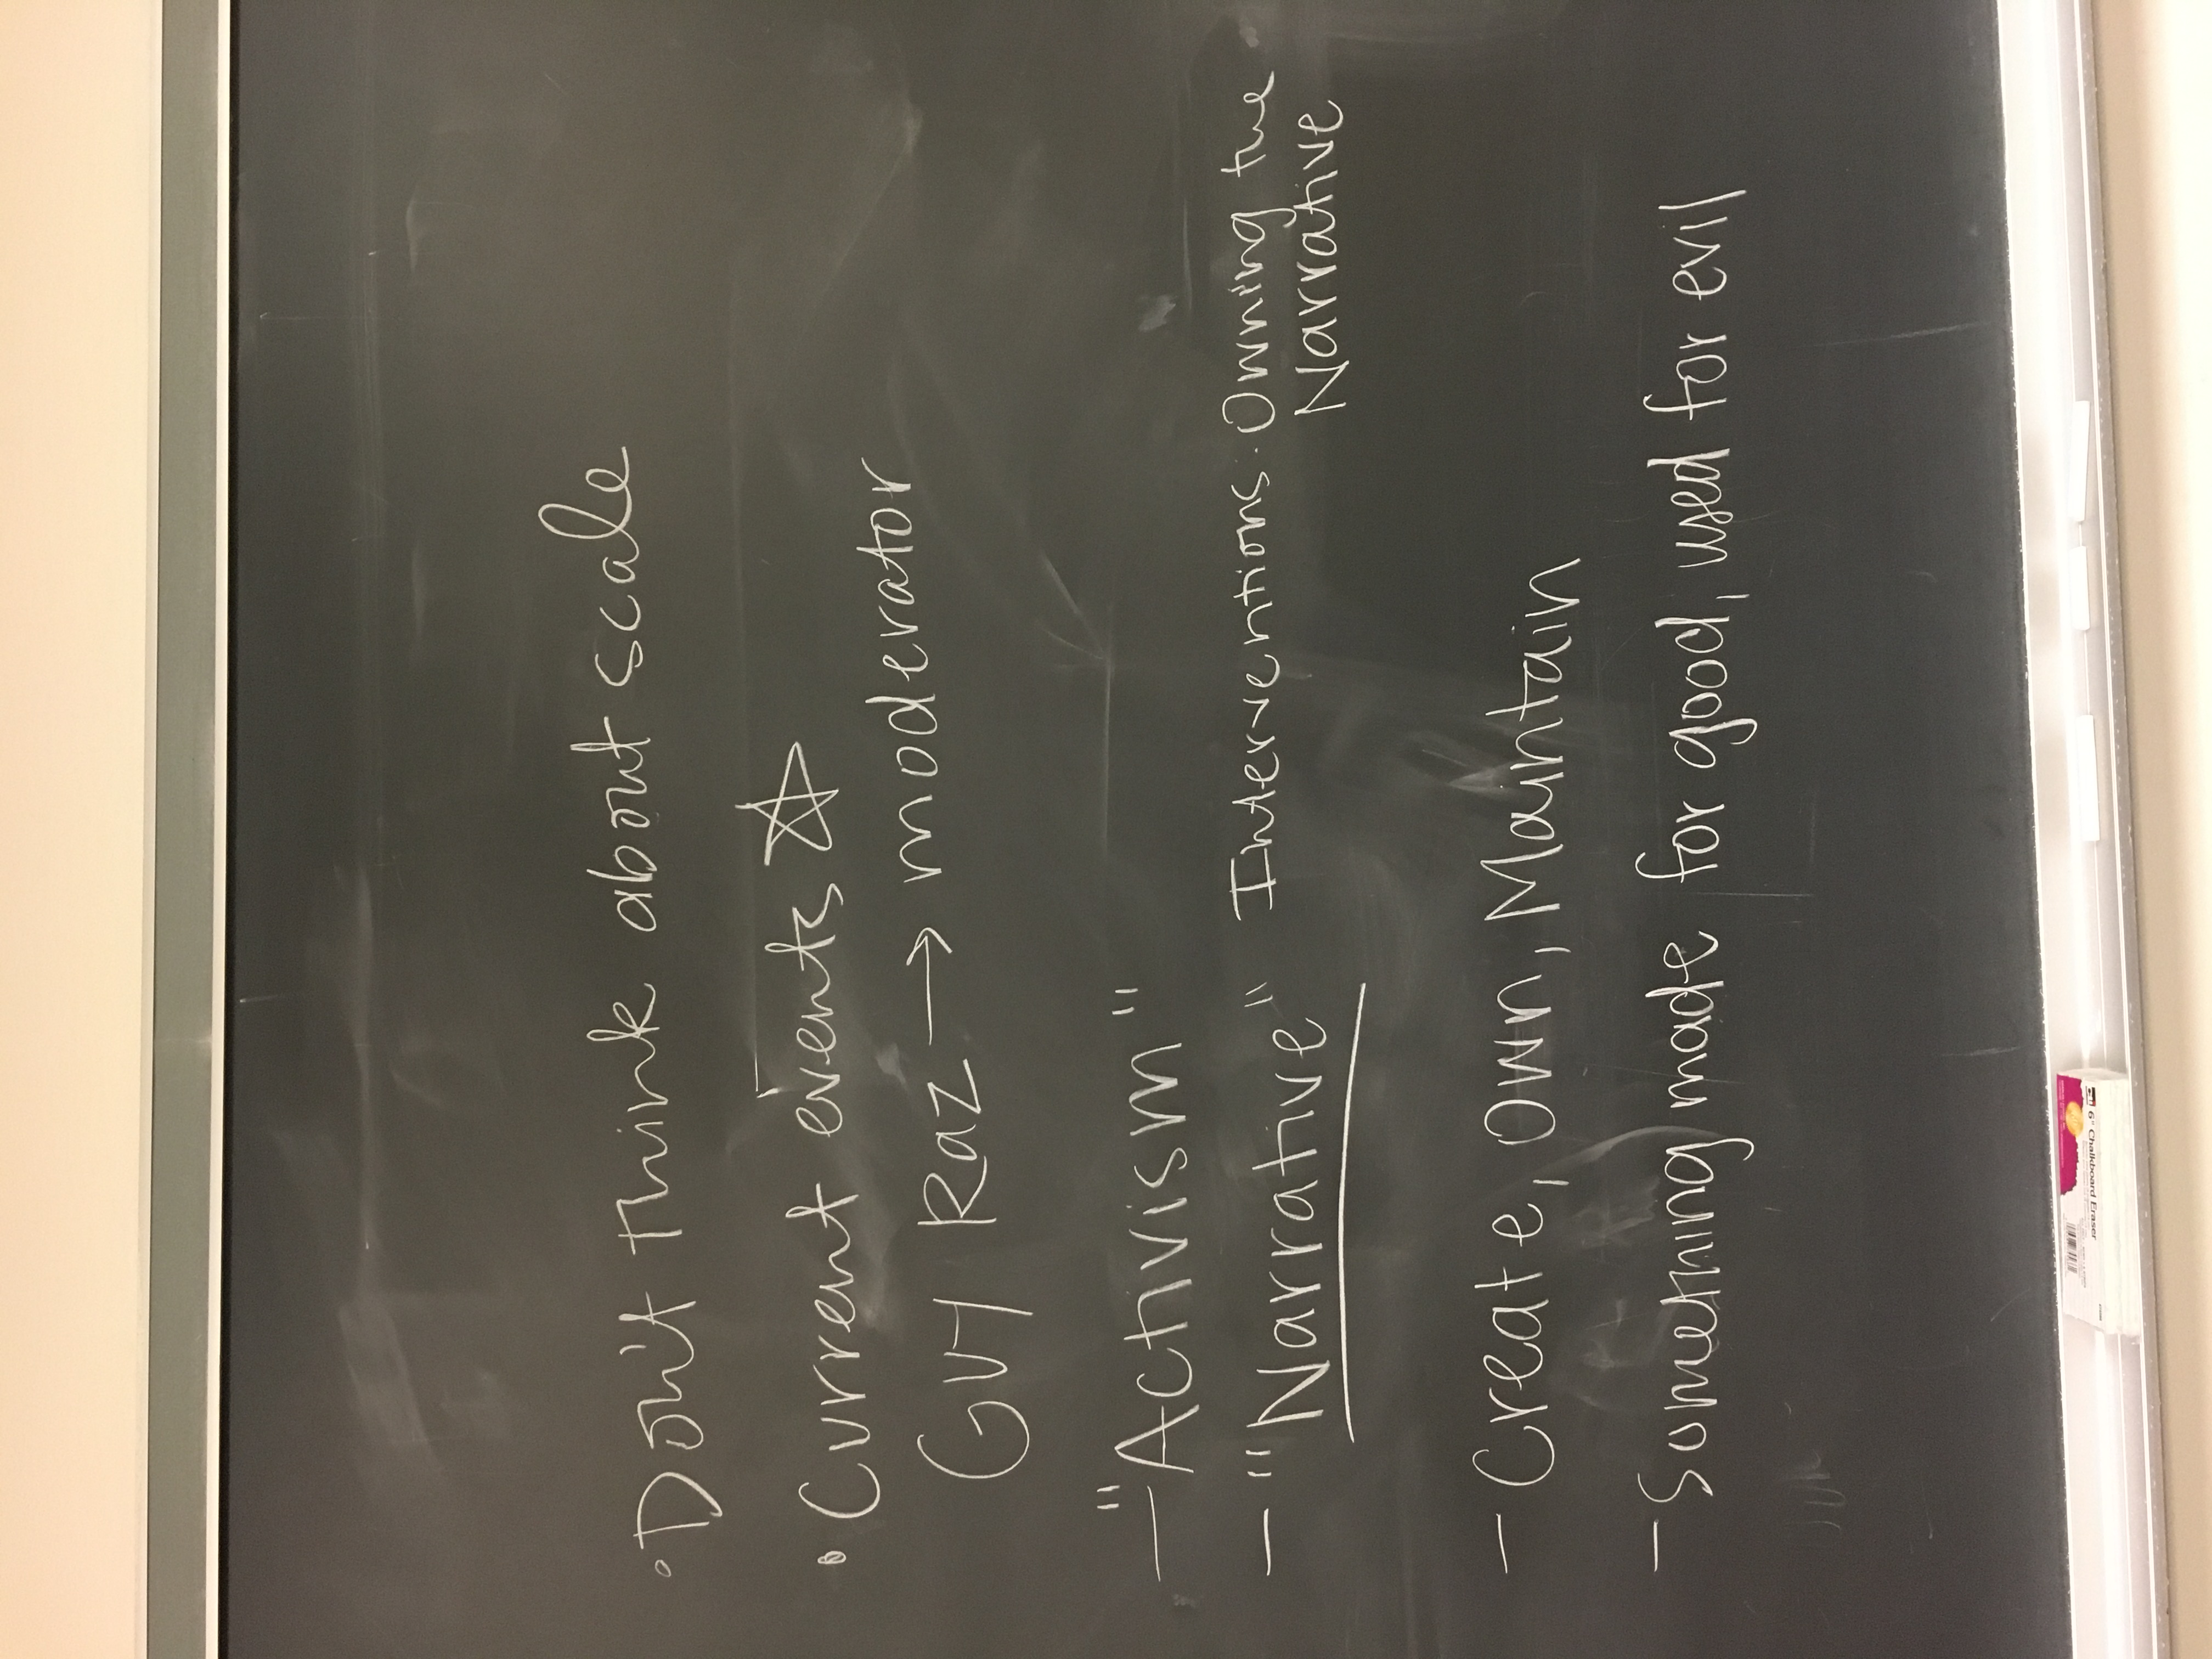 • Don't think about scale
• Current events ☆
Guy Raz → moderator
— "Activism"
— "Narrative" Interventions · Owning the
Narrative
— Create, Own, Maintain
— Something made for good, used for evil
6" Chalkboard Eraser